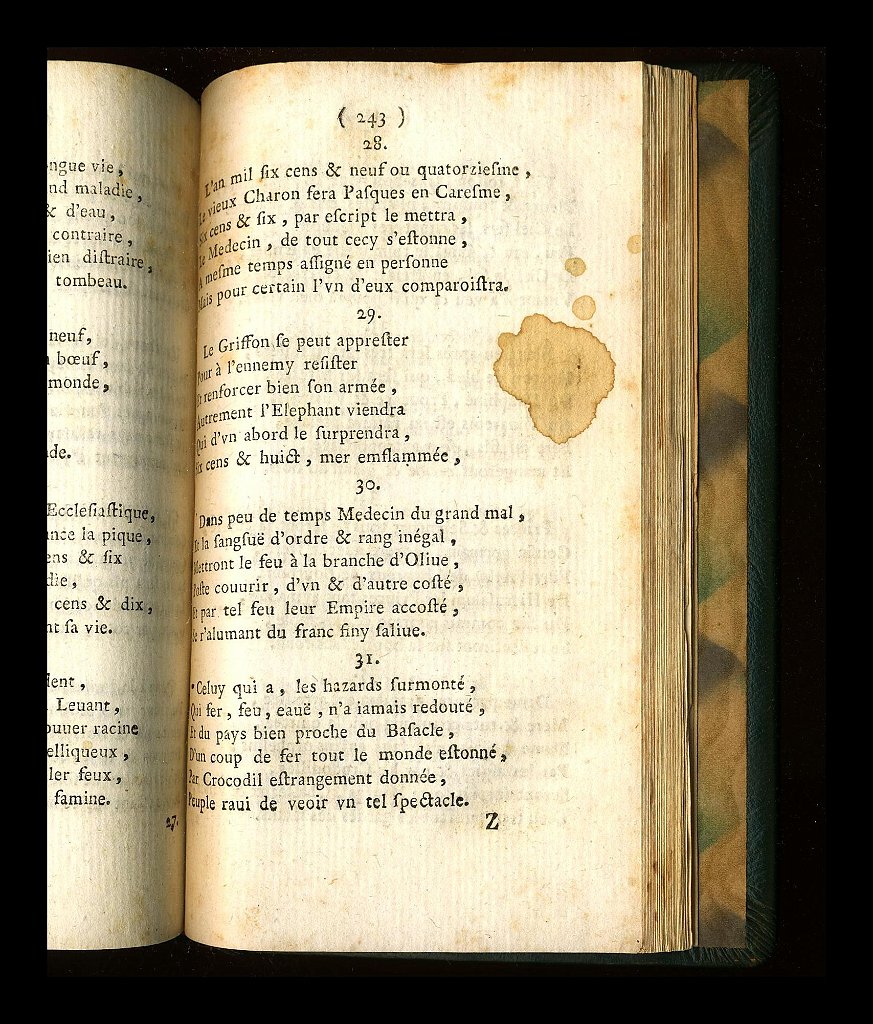 ngue vie,
nd maladie,
& d'eau,
contraire,
ien diſtraire,
tombeau.
neuf,
bœuf,
monde,
de.
Eccleſiaſtique,
nce la pique,
ens & ſix
die,
cens & dix,
nt ſa vie.
dent,
Leuant,
ouuer racine
elliqueux,
ler feux,
famine.
27.
( 243 )
28.
L'an mil ſix cens & neuf ou quatorzieſme,
Le vieux Charon fera Paſques en Careſme,
Six cens & ſix, par eſcript le mettra,
Le Medecin, de tout cecy s'eſtonne,
A meſme temps aſſigné en perſonne
Mais pour certain l'vn d'eux comparoiſtra.
29.
Le Griffon ſe peut appreſter
Pour à l'ennemy reſiſter
Et renforcer bien ſon armée,
Autrement l'Elephant viendra
Qui d'vn abord le ſurprendra,
Six cens & huict, mer emflammée,
30.
Dans peu de temps Medecin du grand mal,
Et la ſangſuë d'ordre & rang inégal,
Mettront le feu à la branche d'Oliue,
Poſte couurir, d'vn & d'autre coſté,
Et par tel feu leur Empire accoſté,
Se r'alumant du franc finy ſaliue.
31.
Celuy qui a, les hazards ſurmonté,
Qui fer, feu, eauë, n'a iamais redouté,
Et du pays bien proche du Baſacle,
D'un coup de fer tout le monde eſtonné,
Par Crocodil eſtrangement donnée,
Peuple raui de veoir vn tel ſpectacle.
Z